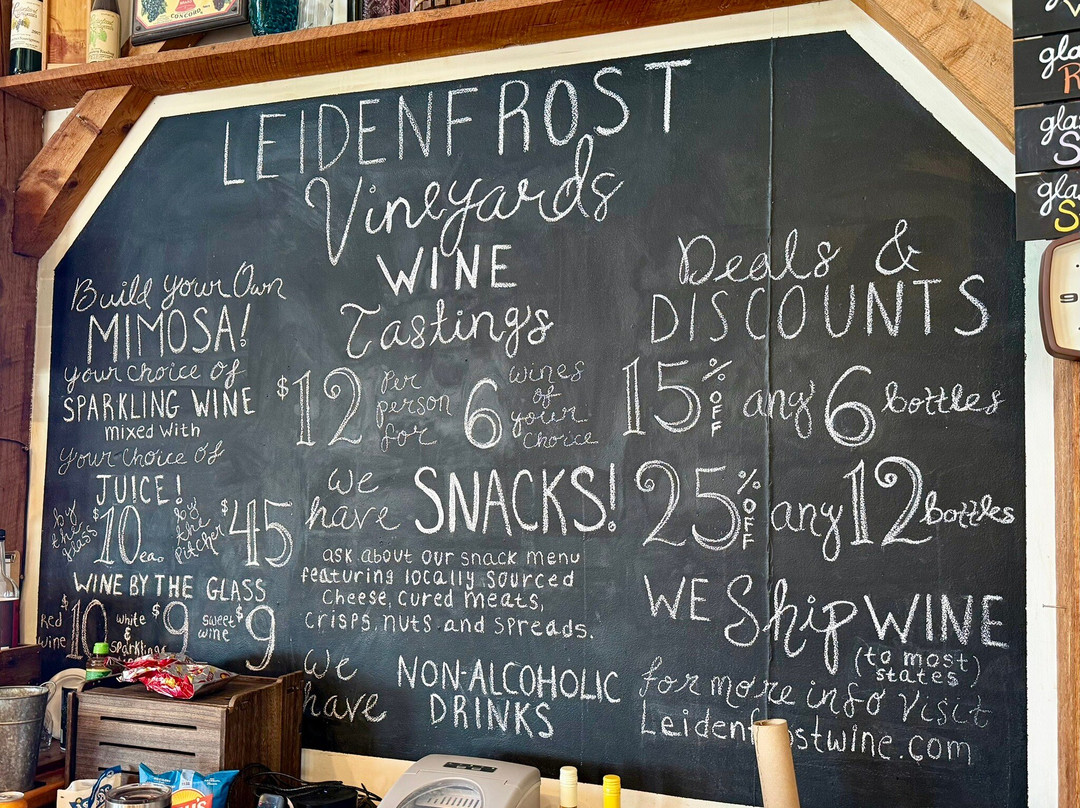 CONCORD
LEIDENFROST
Vineyards
WINE
Tastings
$12 per person for 6 wines of your choice
We have SNACKS!
ask about our snack menu
featuring locally sourced
cheese, cured meats,
crisps, nuts and spreads.
We have NON-ALCOHOLIC
DRINKS
Build Your Own
MIMOSA!
your choice of
SPARKLING WINE
mixed with
your choice of
JUICE!
by the glass $10 ea. by the pitcher $45
WINE BY THE GLASS
Red wine $10 white & sparkling $9 sweet wine $9
Deals &
DISCOUNTS
15% OFF any 6 bottles
25% OFF any 12 bottles
WE Ship WINE
(to most
states)
for more info Visit
Leidenfrostwine.com
9